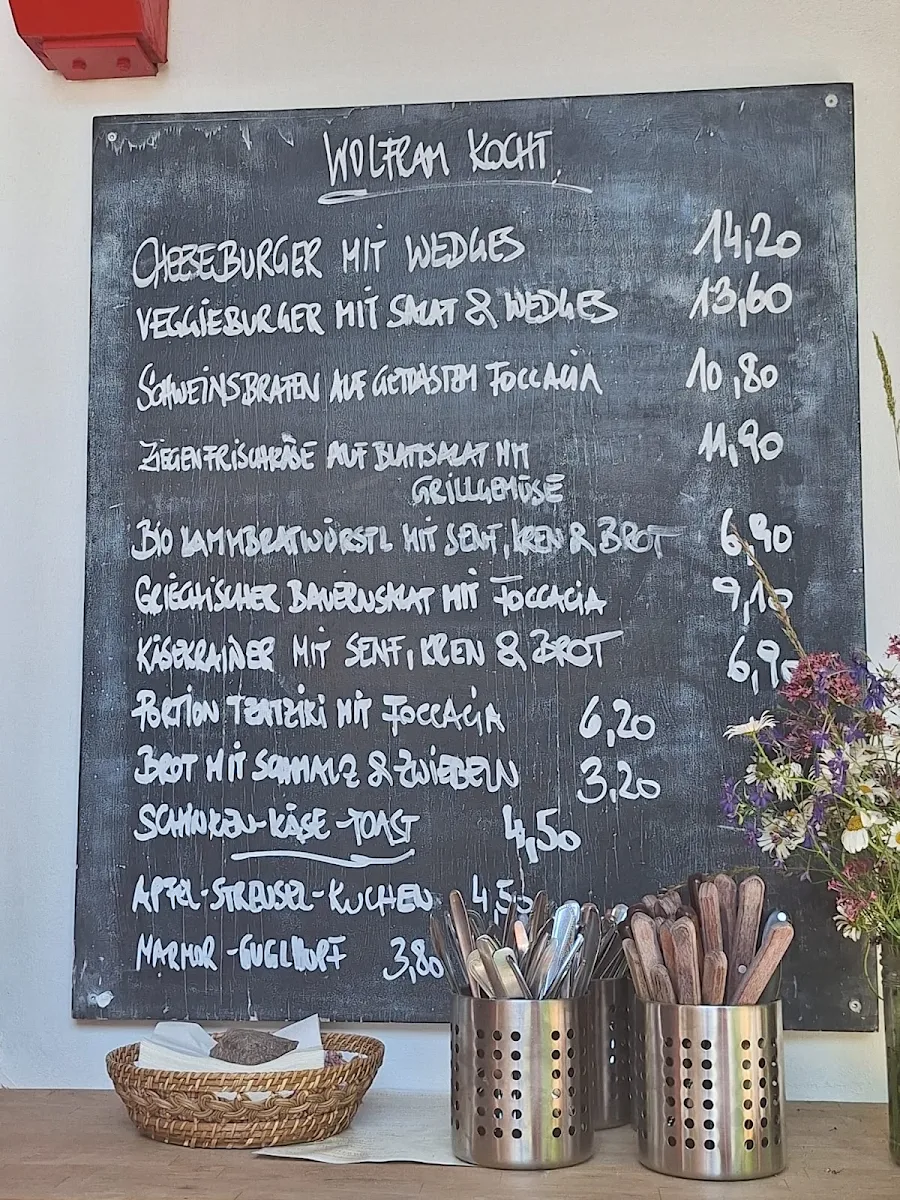 WOLFRAM KOCHT
CHEESEBURGER MIT WEDGES 14,20
VEGGIEBURGER MIT SALAT & WEDGES 13,60
SCHWEINSBRATEN AUF GETOASTEM FOCCACIA 10,80
ZIEGENFRISCHKÄSE AUF BLATTSALAT MIT 11,90
GRILLGEMÜSE
BIO LAMMBRATWÜRSTL MIT SENF, KREN & BROT 6,90
GRIECHISCHER BAUERNSALAT MIT FOCCACIA 9,10
KÄSEKRAINER MIT SENF, KREN & BROT 6,90
PORTION TZATZIKI MIT FOCCACIA 6,20
BROT MIT SCHMALZ & ZWIEBELN 3,20
SCHINKEN-KÄSE-TOAST 4,50
APFEL-STREUSEL-KUCHEN 4,50
MARMOR-GUGLHUPF 3,80